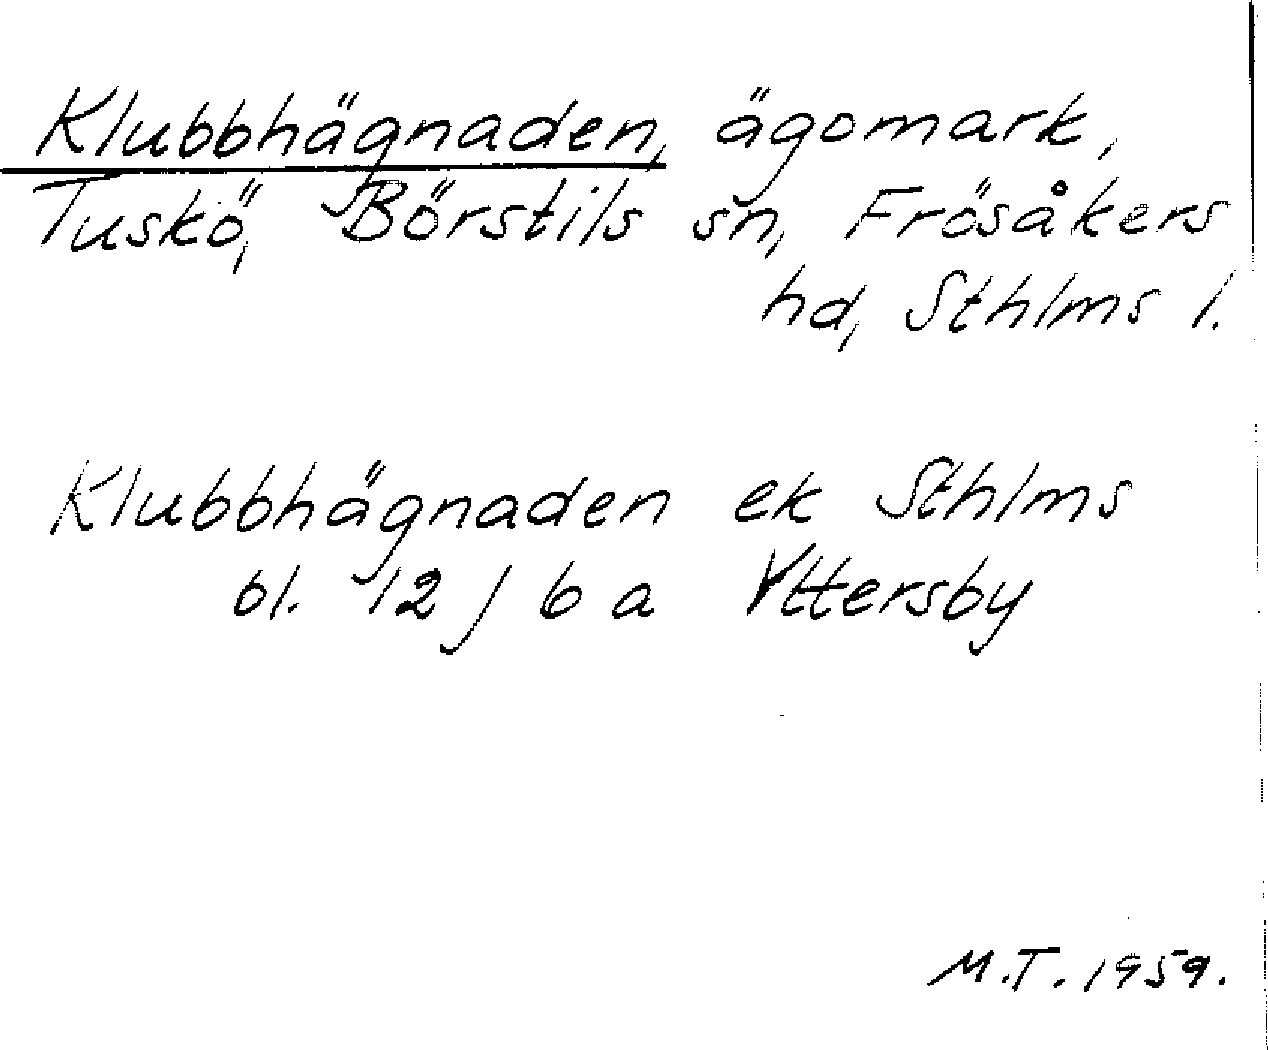 Klubbhägnaden, ägomark,
Tuskö, Börstils sn, Frösåkers
hd, Sthlms l.
Klubbhägnaden ek Sthlms
bl. 12 j 6 a Yttersby
M.T. 1959.